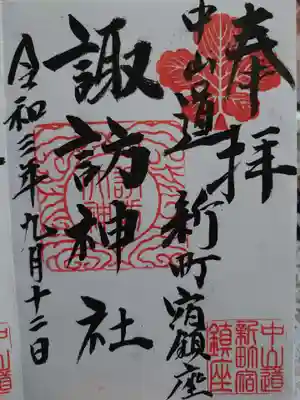 奉拝
中山道 新町宿鎮座
諏訪神社
令和三年九月十二日
中山道
新町宿
鎮座
中山道